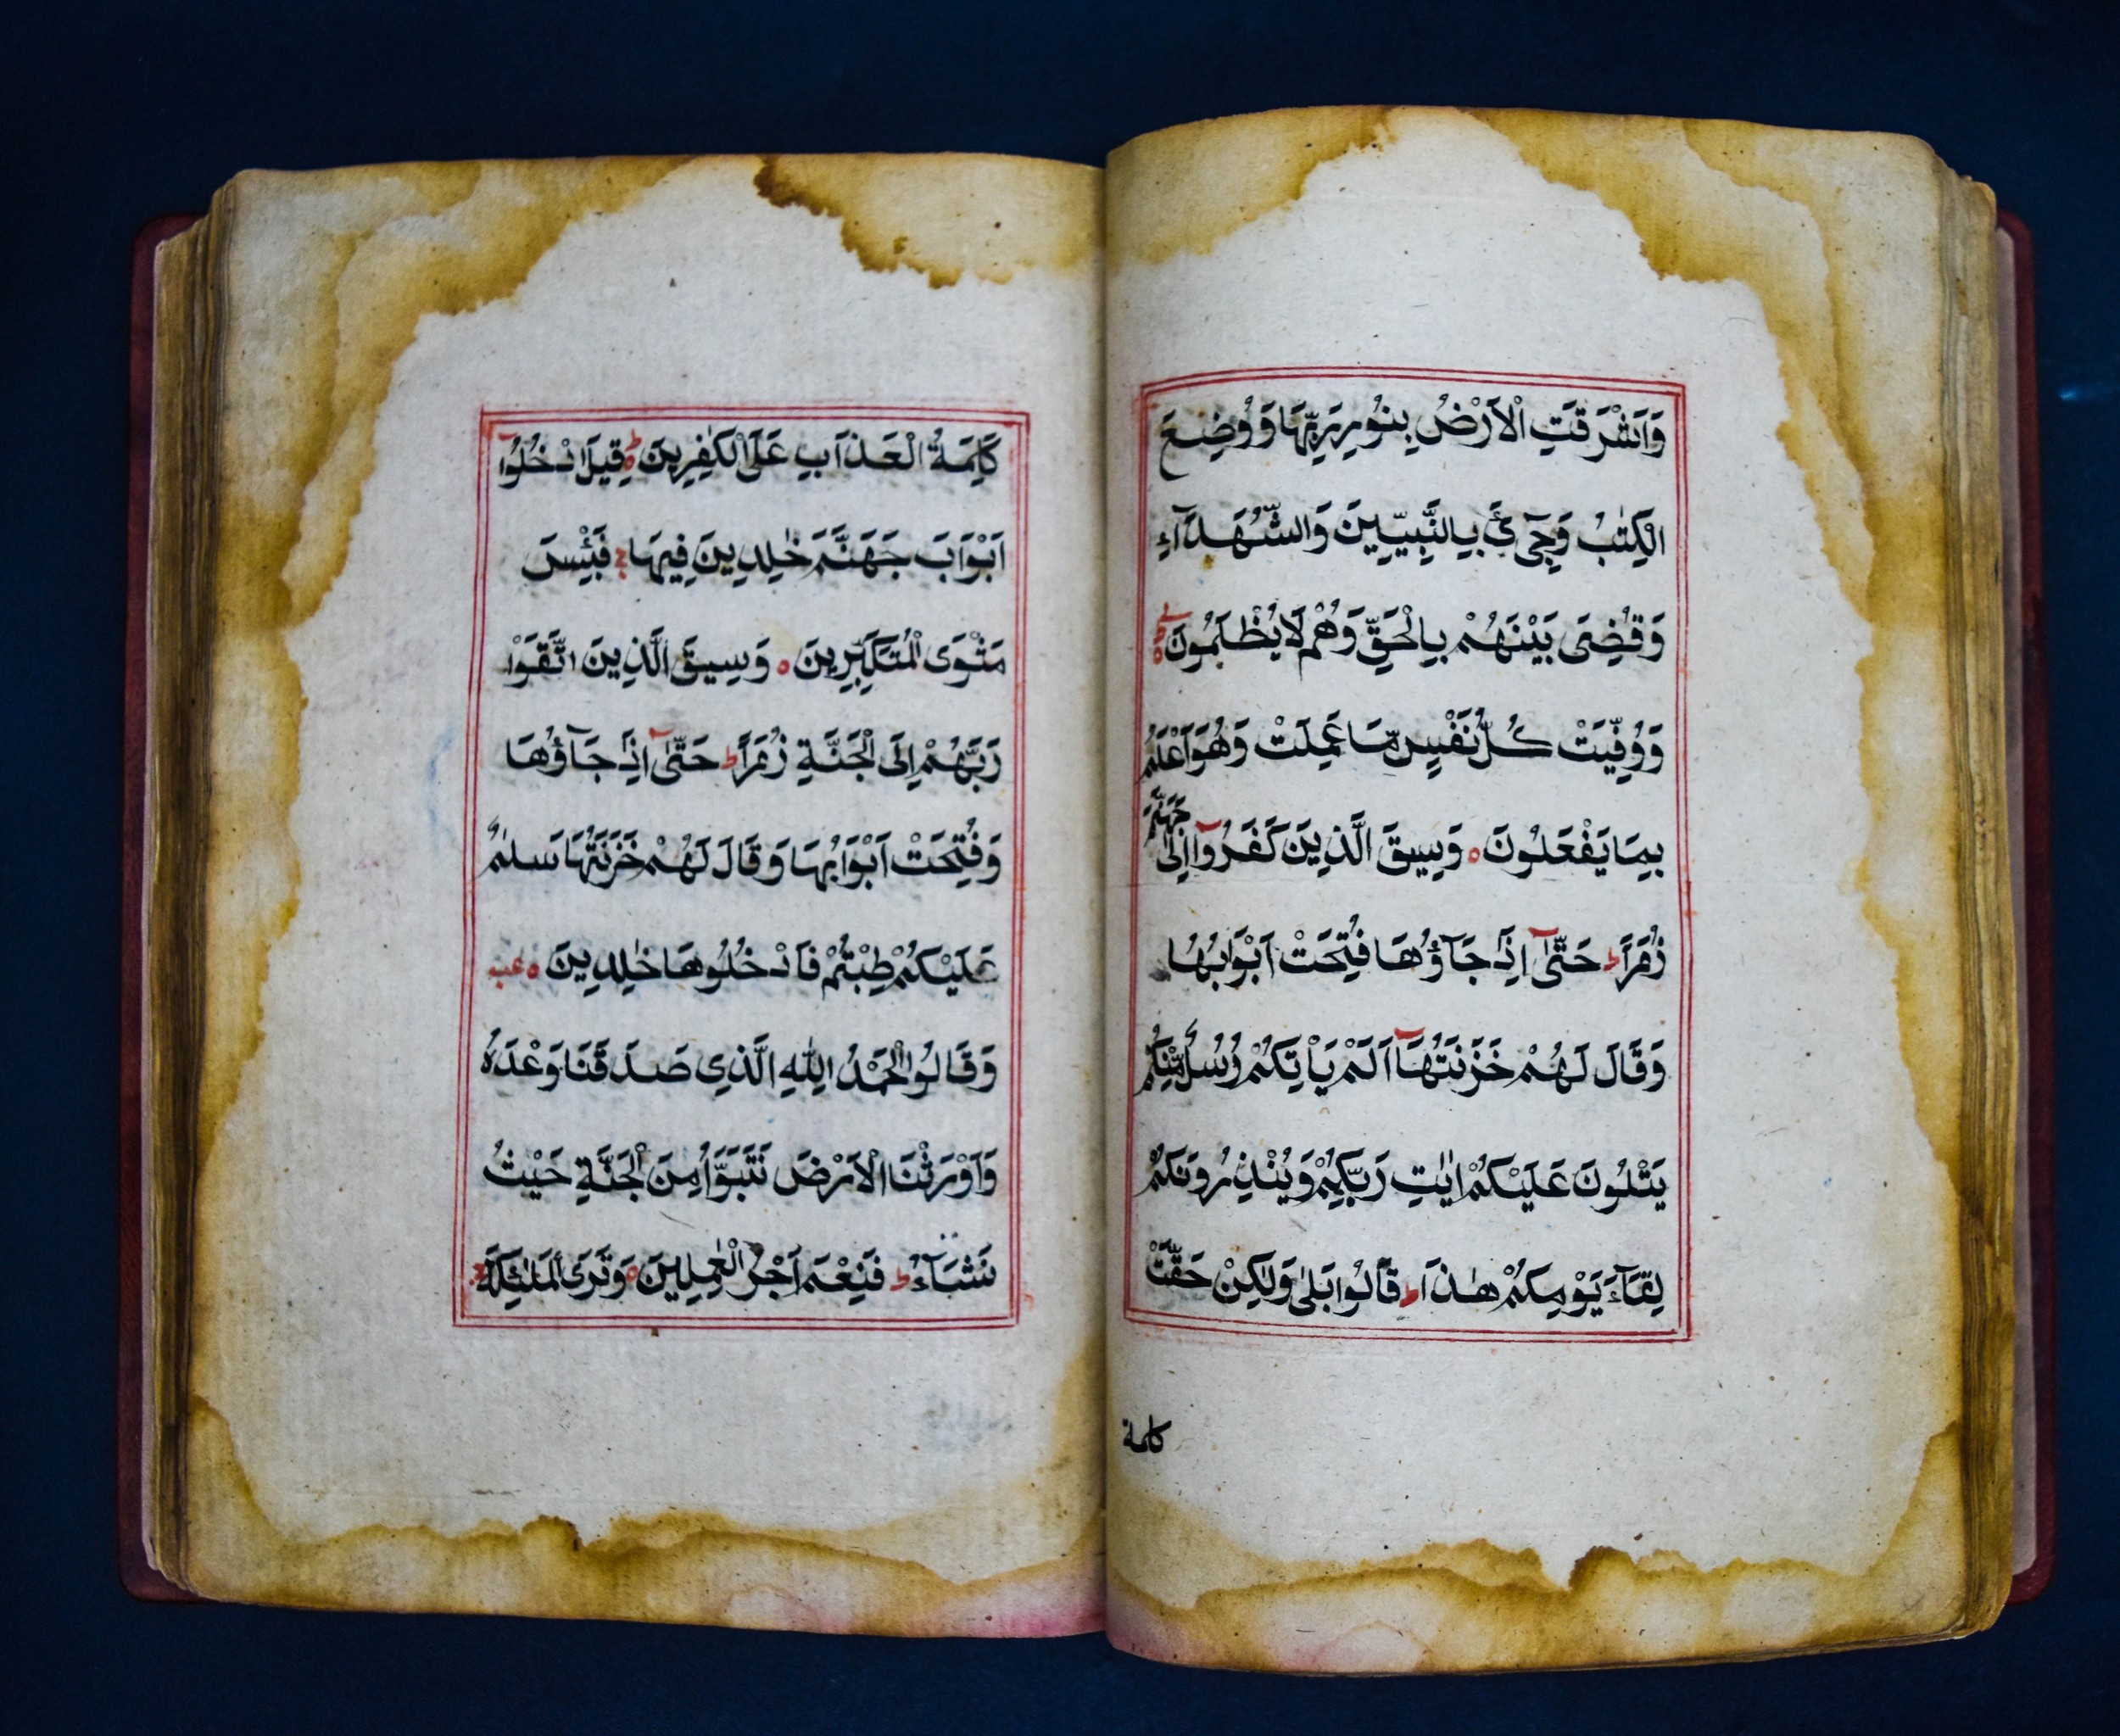 وَاَشْرَقَتِ الْاَرْضُ بِنُوْرِ رَبِّهَا وَوُضِعَ
الْكِتٰبُ وَجِآیْءَ بِالنَّبِیّٖنَ وَالشُّهَدَآءِ
وَقُضِیَ بَیْنَهُمْ بِالْحَقِّ وَهُمْ لَا یُظْلَمُوْنَ
وَوُفِّیَتْ كُلُّ نَفْسٍ مَّا عَمِلَتْ وَهُوَ اَعْلَمُ
بِمَا یَفْعَلُوْنَ ٥ وَسِیْقَ الَّذِیْنَ كَفَرُوْۤا اِلٰی جَهَنَّمَ
زُمَرًا ط حَتّٰۤی اِذَا جَآؤُهَا فُتِحَتْ اَبْوَابُهَا
وَقَالَ لَهُمْ خَزَنَتُهَاۤ اَلَمْ یَاْتِكُمْ رُسُلٌ مِّنْكُمْ
یَتْلُوْنَ عَلَیْكُمْ اٰیٰتِ رَبِّكُمْ وَیُنْذِرُوْنَكُمْ
لِقَآءَ یَوْمِكُمْ هٰذَا ط قَالُوْا بَلٰی وَلٰكِنْ حَقَّتْ
كلمة
كَلِمَةُ الْعَذَابِ عَلَی الْكٰفِرِیْنَ ٥ قِیْلَ ادْخُلُوْۤا
اَبْوَابَ جَهَنَّمَ خٰلِدِیْنَ فِیْهَا ج فَبِئْسَ
مَثْوَی الْمُتَكَبِّرِیْنَ ٥ وَسِیْقَ الَّذِیْنَ اتَّقَوْا
رَبَّهُمْ اِلَی الْجَنَّةِ زُمَرًا ط حَتّٰۤی اِذَا جَآؤُهَا
وَفُتِحَتْ اَبْوَابُهَا وَقَالَ لَهُمْ خَزَنَتُهَا سَلٰمٌ
عَلَیْكُمْ طِبْتُمْ فَادْخُلُوْهَا خٰلِدِیْنَ ٥
وَقَالُوا الْحَمْدُ لِلّٰهِ الَّذِیْ صَدَقَنَا وَعْدَهٗ
وَاَوْرَثَنَا الْاَرْضَ نَتَبَوَّاُ مِنَ الْجَنَّةِ حَیْثُ
نَشَآءُ ط فَنِعْمَ اَجْرُ الْعٰمِلِیْنَ ٥ وَتَرَی الْمَلٰٓئِكَةَ